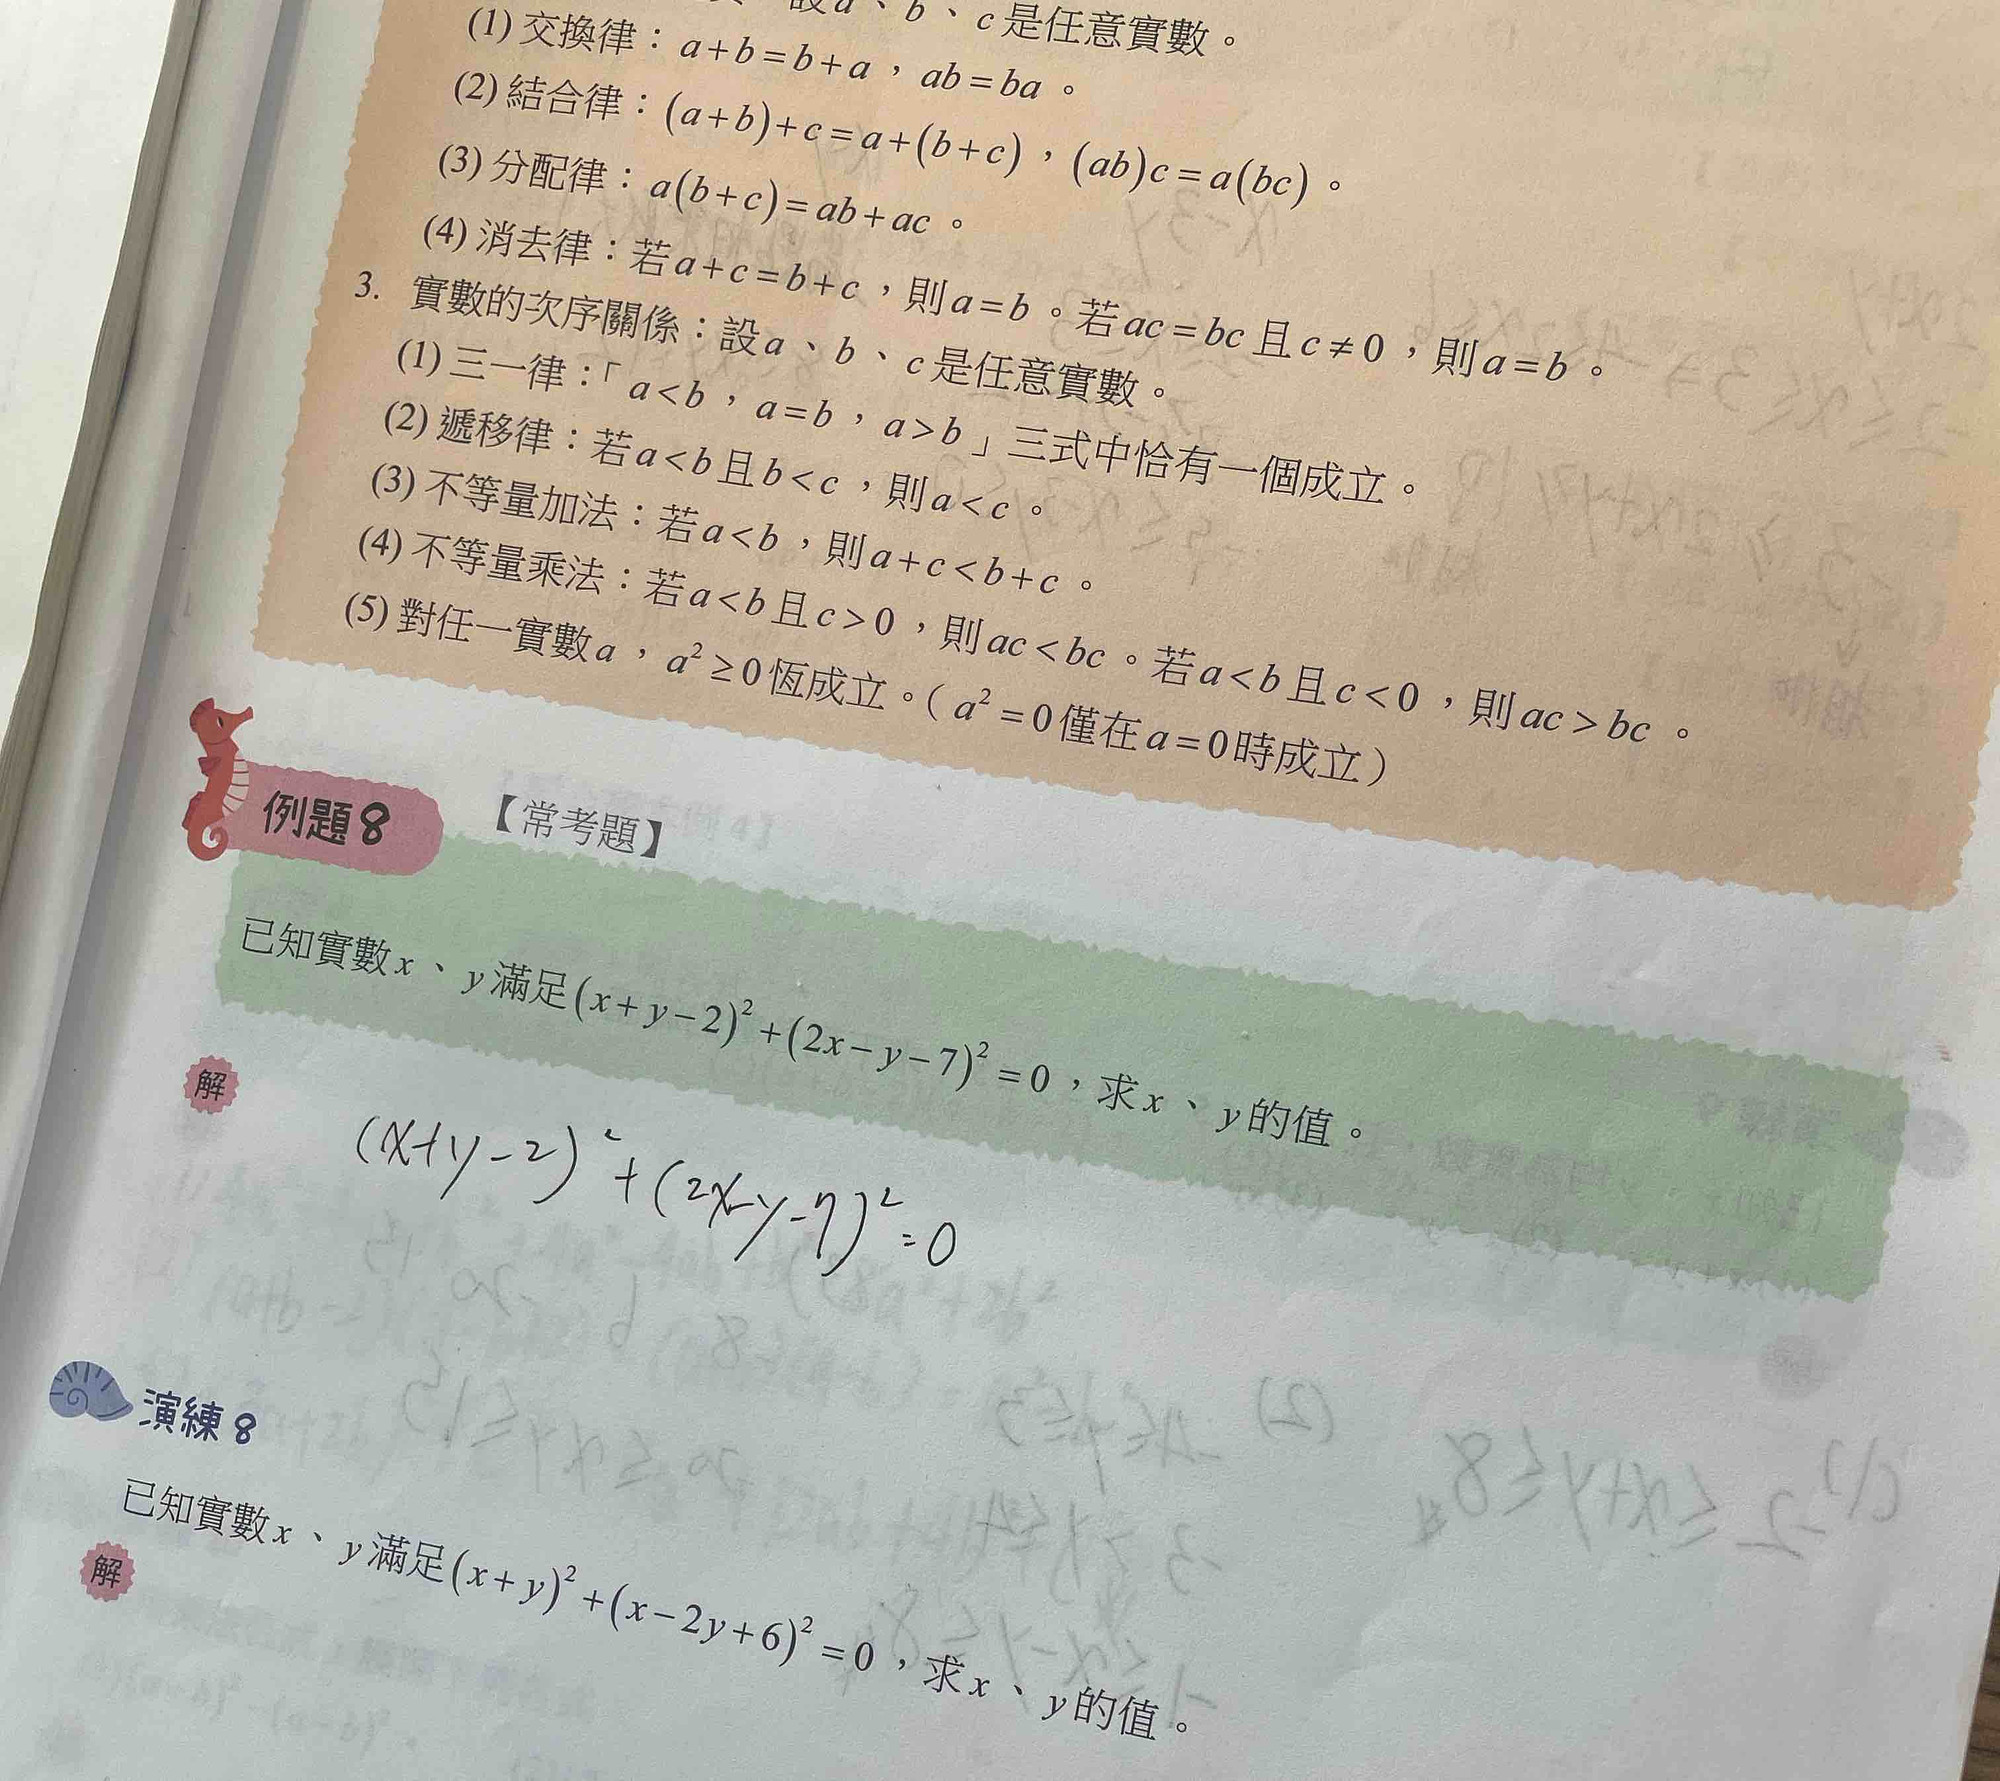 設a、b、c是任意實數。
(1) 交換律：a+b=b+a，ab=ba。
(2) 結合律：(a+b)+c=a+(b+c)，(ab)c=a(bc)。
(3) 分配律：a(b+c)=ab+ac。
(4) 消去律：若a+c=b+c，則a=b。若ac=bc且c≠0，則a=b。
3. 實數的次序關係：設a、b、c是任意實數。
(1) 三一律：「a<b，a=b，a>b」三式中恰有一個成立。
(2) 遞移律：若a<b且b<c，則a<c。
(3) 不等量加法：若a<b，則a+c<b+c。
(4) 不等量乘法：若a<b且c>0，則ac<bc。若a<b且c<0，則ac>bc。
(5) 對任一實數a，a²≥0恆成立。（a²=0僅在a=0時成立）
例題8 【常考題】
已知實數x、y滿足(x+y-2)²+(2x-y-7)²=0，求x、y的值。
解
(x+y-2)²+(2x-y-7)²=0
演練8
已知實數x、y滿足(x+y)²+(x-2y+6)²=0，求x、y的值。
解